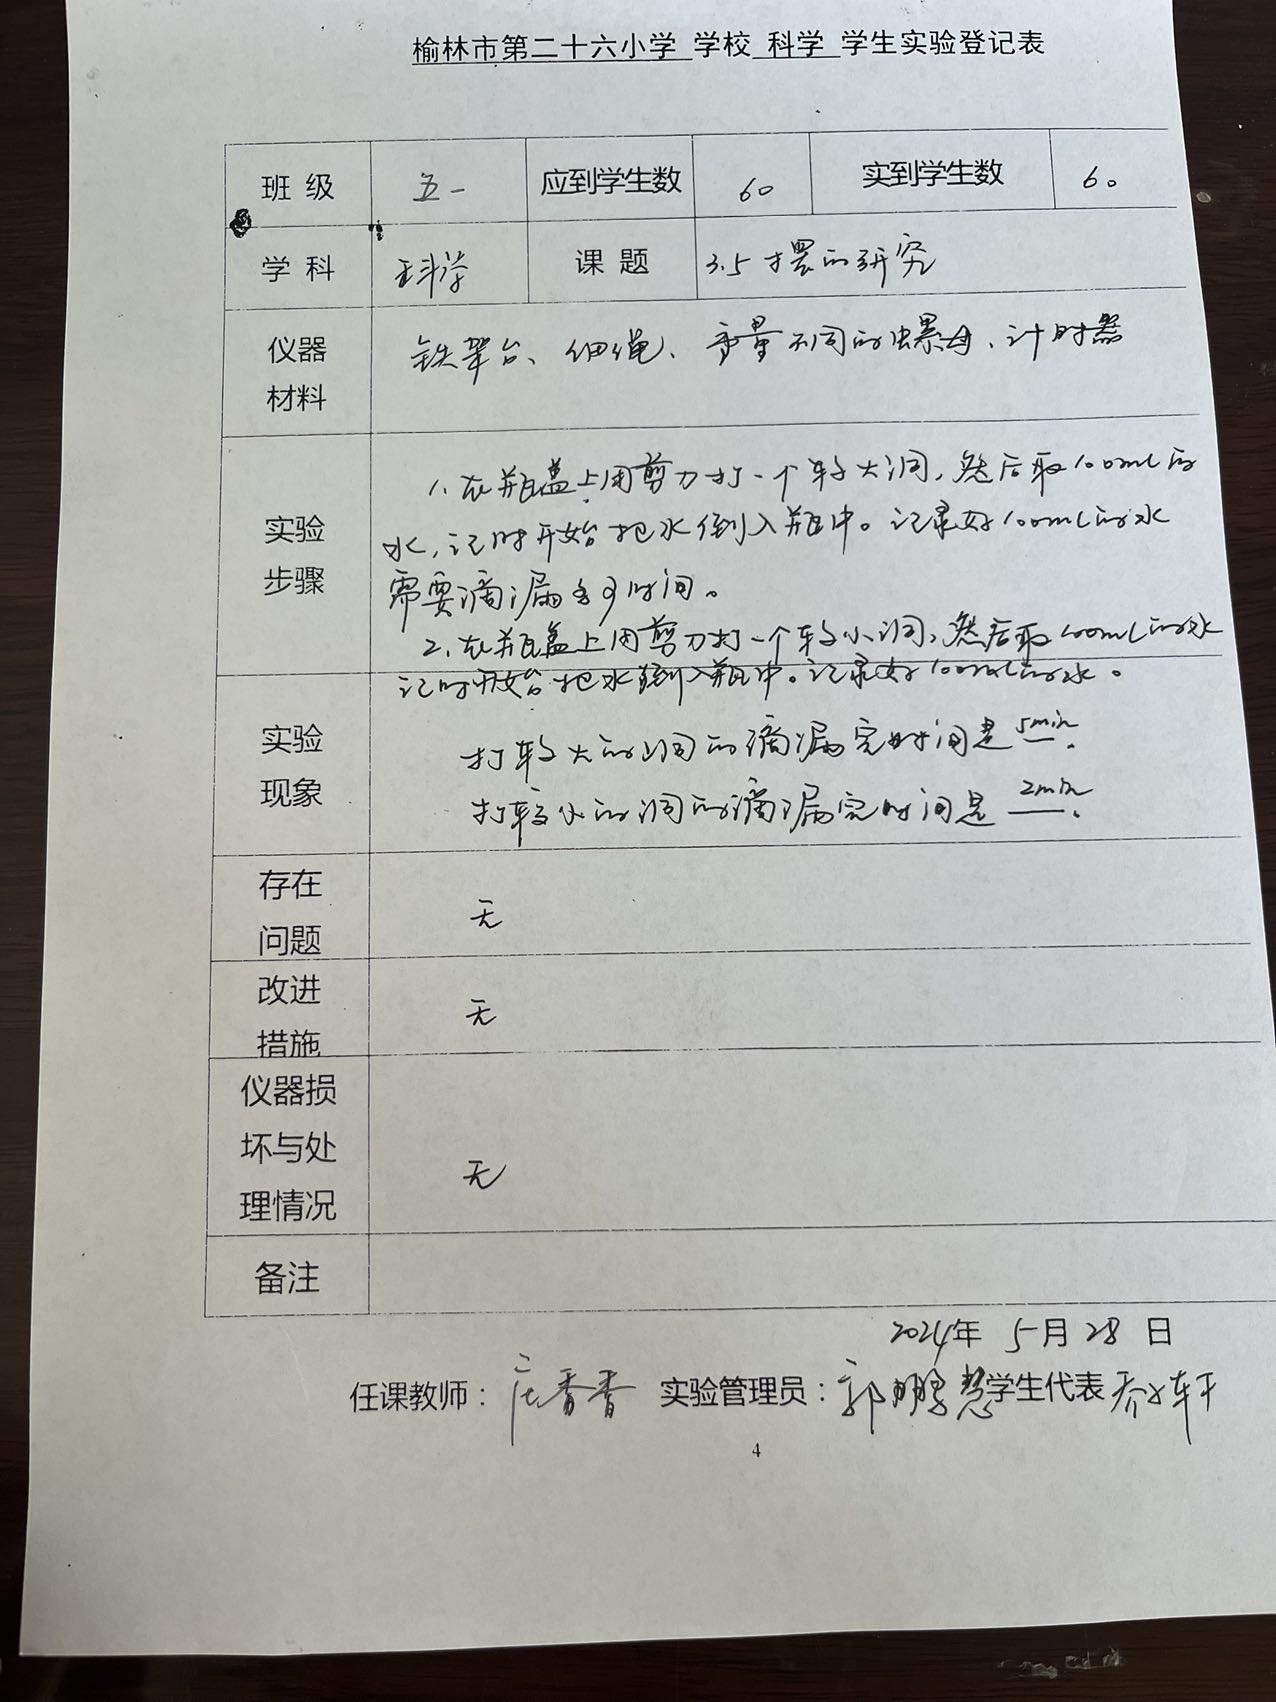 榆林市第二十六小学 学校 科学 学生实验登记表
班 级 五一 应到学生数 60 实到学生数 60
学 科 科学 课 题 3.5摆的研究
仪器材料 铁架台、细绳、重量不同的螺母、计时器
实验步骤
1、在瓶盖上用剪刀打一个较大洞,然后取100mL的
水,记时开始把水倒入瓶中。记录好100mL的水
需要滴漏多少时间。
2、在瓶盖上用剪刀打一个较小洞,然后取100mL的水
记时开始把水倒入瓶中。记录好100mL的水。
实验现象
打较大的洞的滴漏完时间是5min.
打较小的洞的滴漏完时间是2min.
存在问题 无
改进措施 无
仪器损坏与处理情况 无
备注
2024年 5月28 日
任课教师: 香香 实验管理员:郭鹏慧 学生代表
4